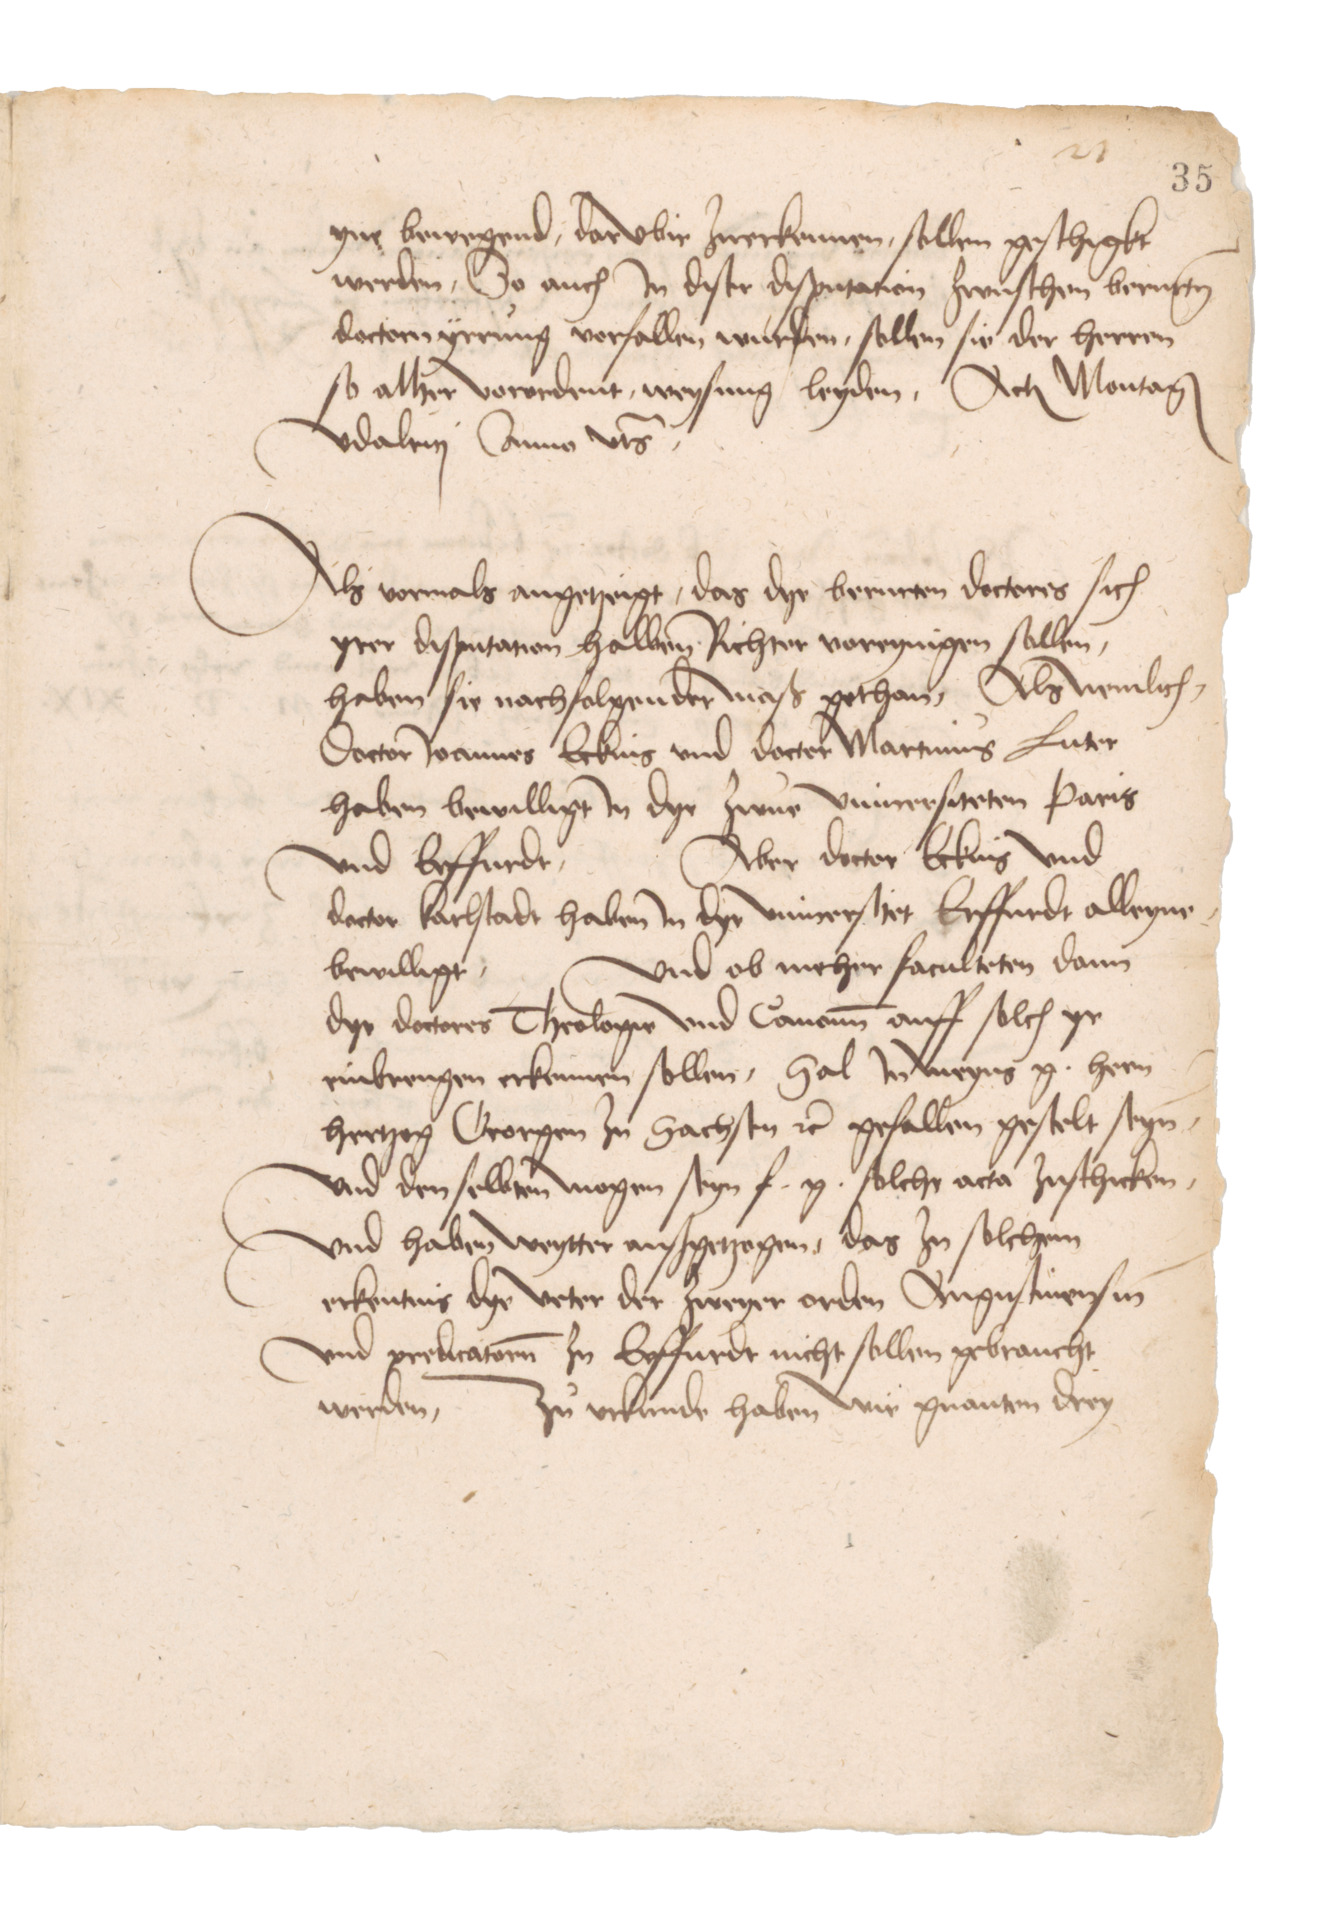 21
35
yne bewegend, darvbir zuerkennen, sollen geschigkt
werden, So auch In diser disputation zwuschen berurtn
doctorn yrrung vorfallen wurden, sollen sie der herren
so alher vorordent, weysung leyden, Act Montag
vdalrici Anno vts,
Als vormals angetzeigt, das dye berurten doctores sich
yrer disputation halben Richter voreynigen sollen,
haben sie nachfolgender mass gethan, Als nemlich,
Doctor Joannes Eckius vnd doctor Martinus Luter
haben bewilligt In dye zwue vniuersiteten Paris
vnd Erffurdt, Aber doctor Eckius vnd
doctor karlstadt haben In dye vniuersitet Erffurdt alleyne,
bewilligt, Vnd ob meher faculteten dann
dye doctores Theologie vnd Canonū auff solch yr
einbrengen erkennen sollen, Sal In meyns g. hern
hertzog Georgen zu Sachsen rc gefallen gestelt seyn,
Vnd den selbten mogen seyn f. g. solche acta zuschicken,
Vnd haben weytter aussgetzogen, das zu solchem
erkentnis dye veter der zweyer orden Augustinensiū
vnd predicatorū zu Erffurdt nicht sollen gebraucht
werden, Zu vrkunde haben wir gnanten drey